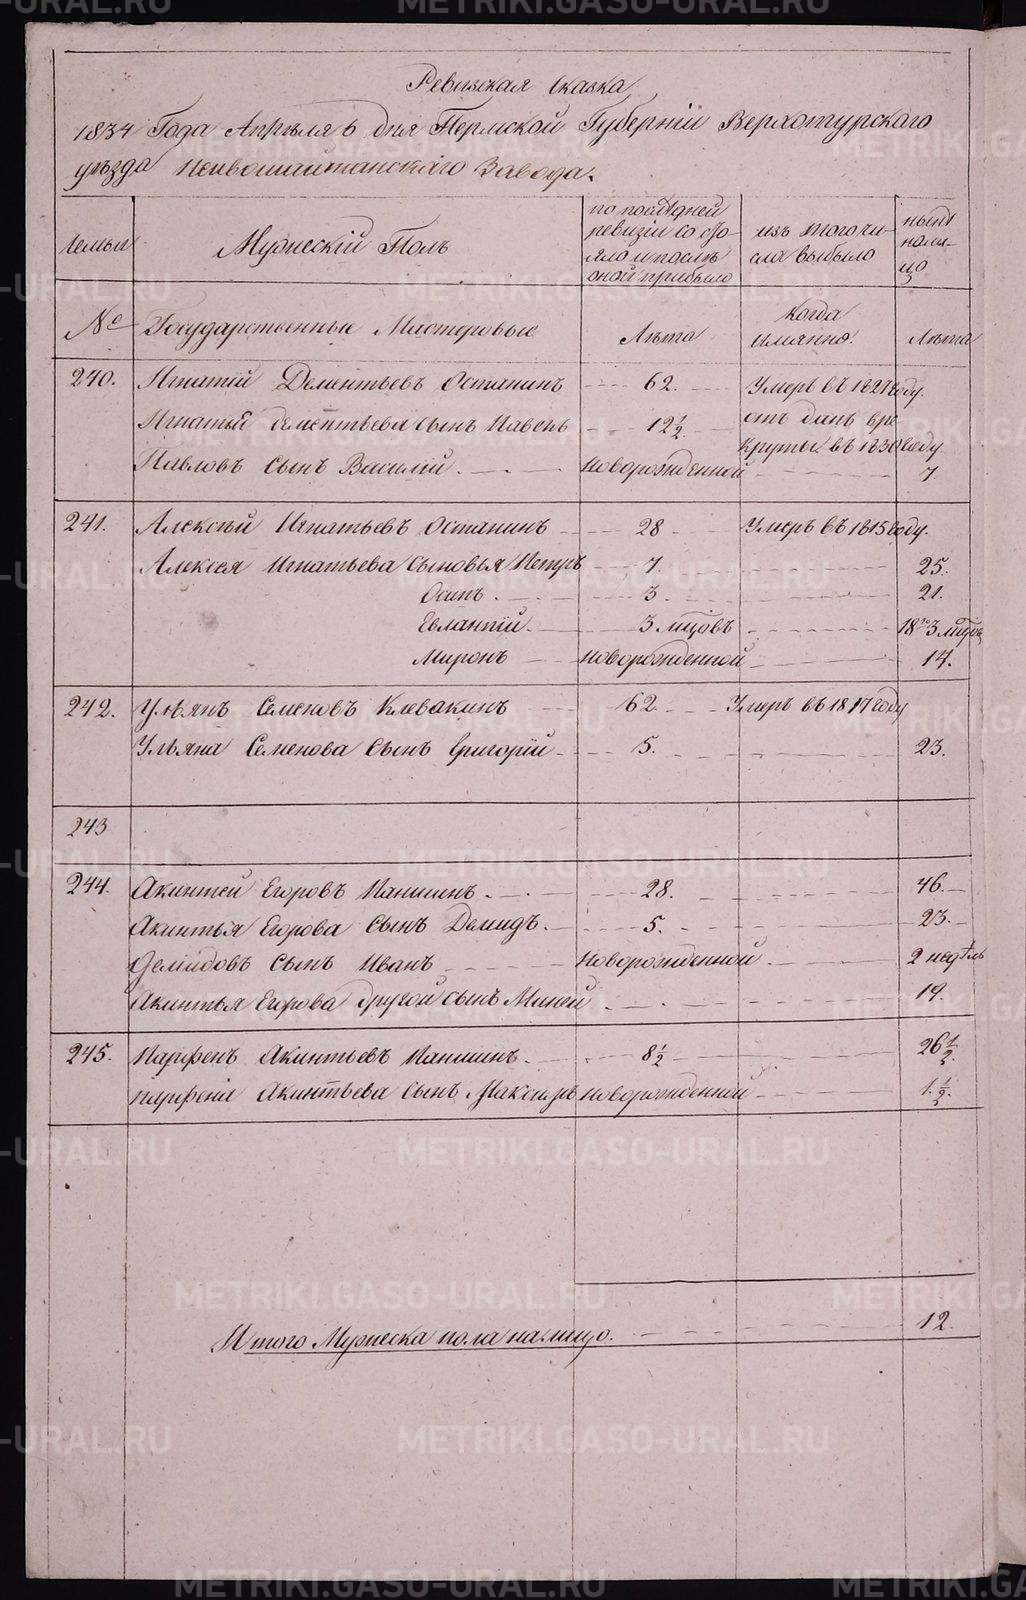 Ревизская Сказка
1834 Года Апреля 6 дня Пермской Губернiи Верхотурского
уезда Невьошайтанскаго Завода.
семьи
Мужескiй Полъ
по последней ревизiи состояло и после оной прибыло
изъ того числа выбыло
ныне налицо
№
Государственные Мастеровые
Лета
когда имянно.
Лета
240. Игнатiй Дементьевъ Останинъ 62. Умеръ въ 1827 году.
Игнатья дементьева сынъ Павелъ 12 1/2 отъ данъ вре круты въ 1830 году.
Павловъ сынъ Василiй. Новорожденной 7
241. Алексей Игнатьевъ Останинъ 28 Умеръ въ 1815 году.
Алексея Игнатьева Сыновья Петръ 7. 25.
Осипъ. 3. 21.
Евлампiй. 3 мцовъ 18 3 мцов
Миронъ Новорожденной 17.
242. Ульянъ Семеновъ Клевакинъ 62 Умеръ въ 1817 году
Ульяна Семенова Сынъ Григорiй 5. 23.
243
244. Акинтей Егоровъ Паншинъ. 28. 46.
Акинтья Егорова Сынъ Демидъ. 5. 23.
Демидовъ Сынъ Иванъ Новорожденной 2 недель
Акинтья Егорова другой сынъ Миней 19.
245. Парфенъ Акинтьевъ Паншинъ. 8 1/2 26 1/2.
парфена Акинтьева Сынъ Максимъ Новорожденной 1. 1/2.
Итого Мужеска пола налицо. 12.
METRIKI.GASO-URAL.RU